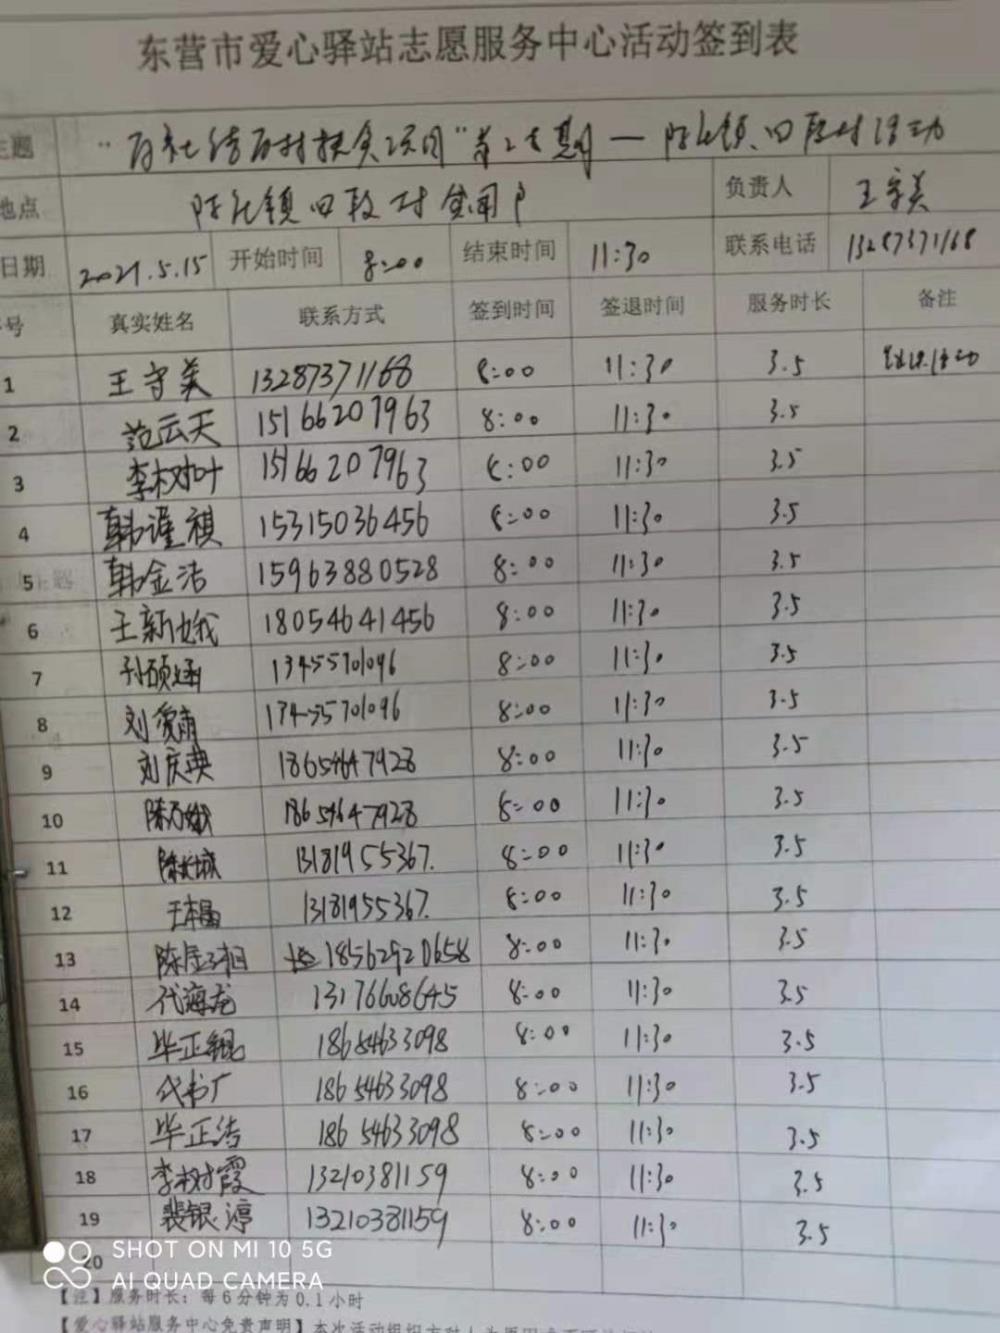 东营市爱心驿站志愿服务中心活动签到表
主题 "百社结百村扶贫项目"第 期—陈 镇四段村活动
地点 陈 镇四段村 负责人 王守美
日期 2021.5.15 开始时间 8:00 结束时间 11:30 联系电话 13287371168
序号 真实姓名 联系方式 签到时间 签退时间 服务时长 备注
1 王守美 13287371168 8:00 11:30 3.5
2 范云天 15166207963 8:00 11:30 3.5
3 李树叶 15166207963 8:00 11:30 3.5
4 韩谨祺 15315036456 8:00 11:30 3.5
5 韩金洁 15963880528 8:00 11:30 3.5
6 王新娥 18054641456 8:00 11:30 3.5
7 孙硕涵 13455701096 8:00 11:30 3.5
8 刘 雨 13455701096 8:00 11:30 3.5
9 刘庆典 18654647928 8:00 11:30 3.5
10 陈万娥 18654647928 8:00 11:30 3.5
11 陈 城 13181955367. 8:00 11:30 3.5
12 王 13181955367. 8:00 11:30 3.5
13 陈 18562920658 8:00 11:30 3.5
14 代海龙 13176608645 8:00 11:30 3.5
15 毕正锟 18654633098 8:00 11:30 3.5
16 代书广 18654633098 8:00 11:30 3.5
17 毕正浩 18654633098 8:00 11:30 3.5
18 李树霞 13210381159 8:00 11:30 3.5
19 裴银淳 13210381159 8:00 11:30 3.5
20
【注】服务时长：每6分钟为0.1小时
【爱心驿站服务中心免责声明】本次活动组织方对
SHOT ON MI 10 5G
AI QUAD CAMERA